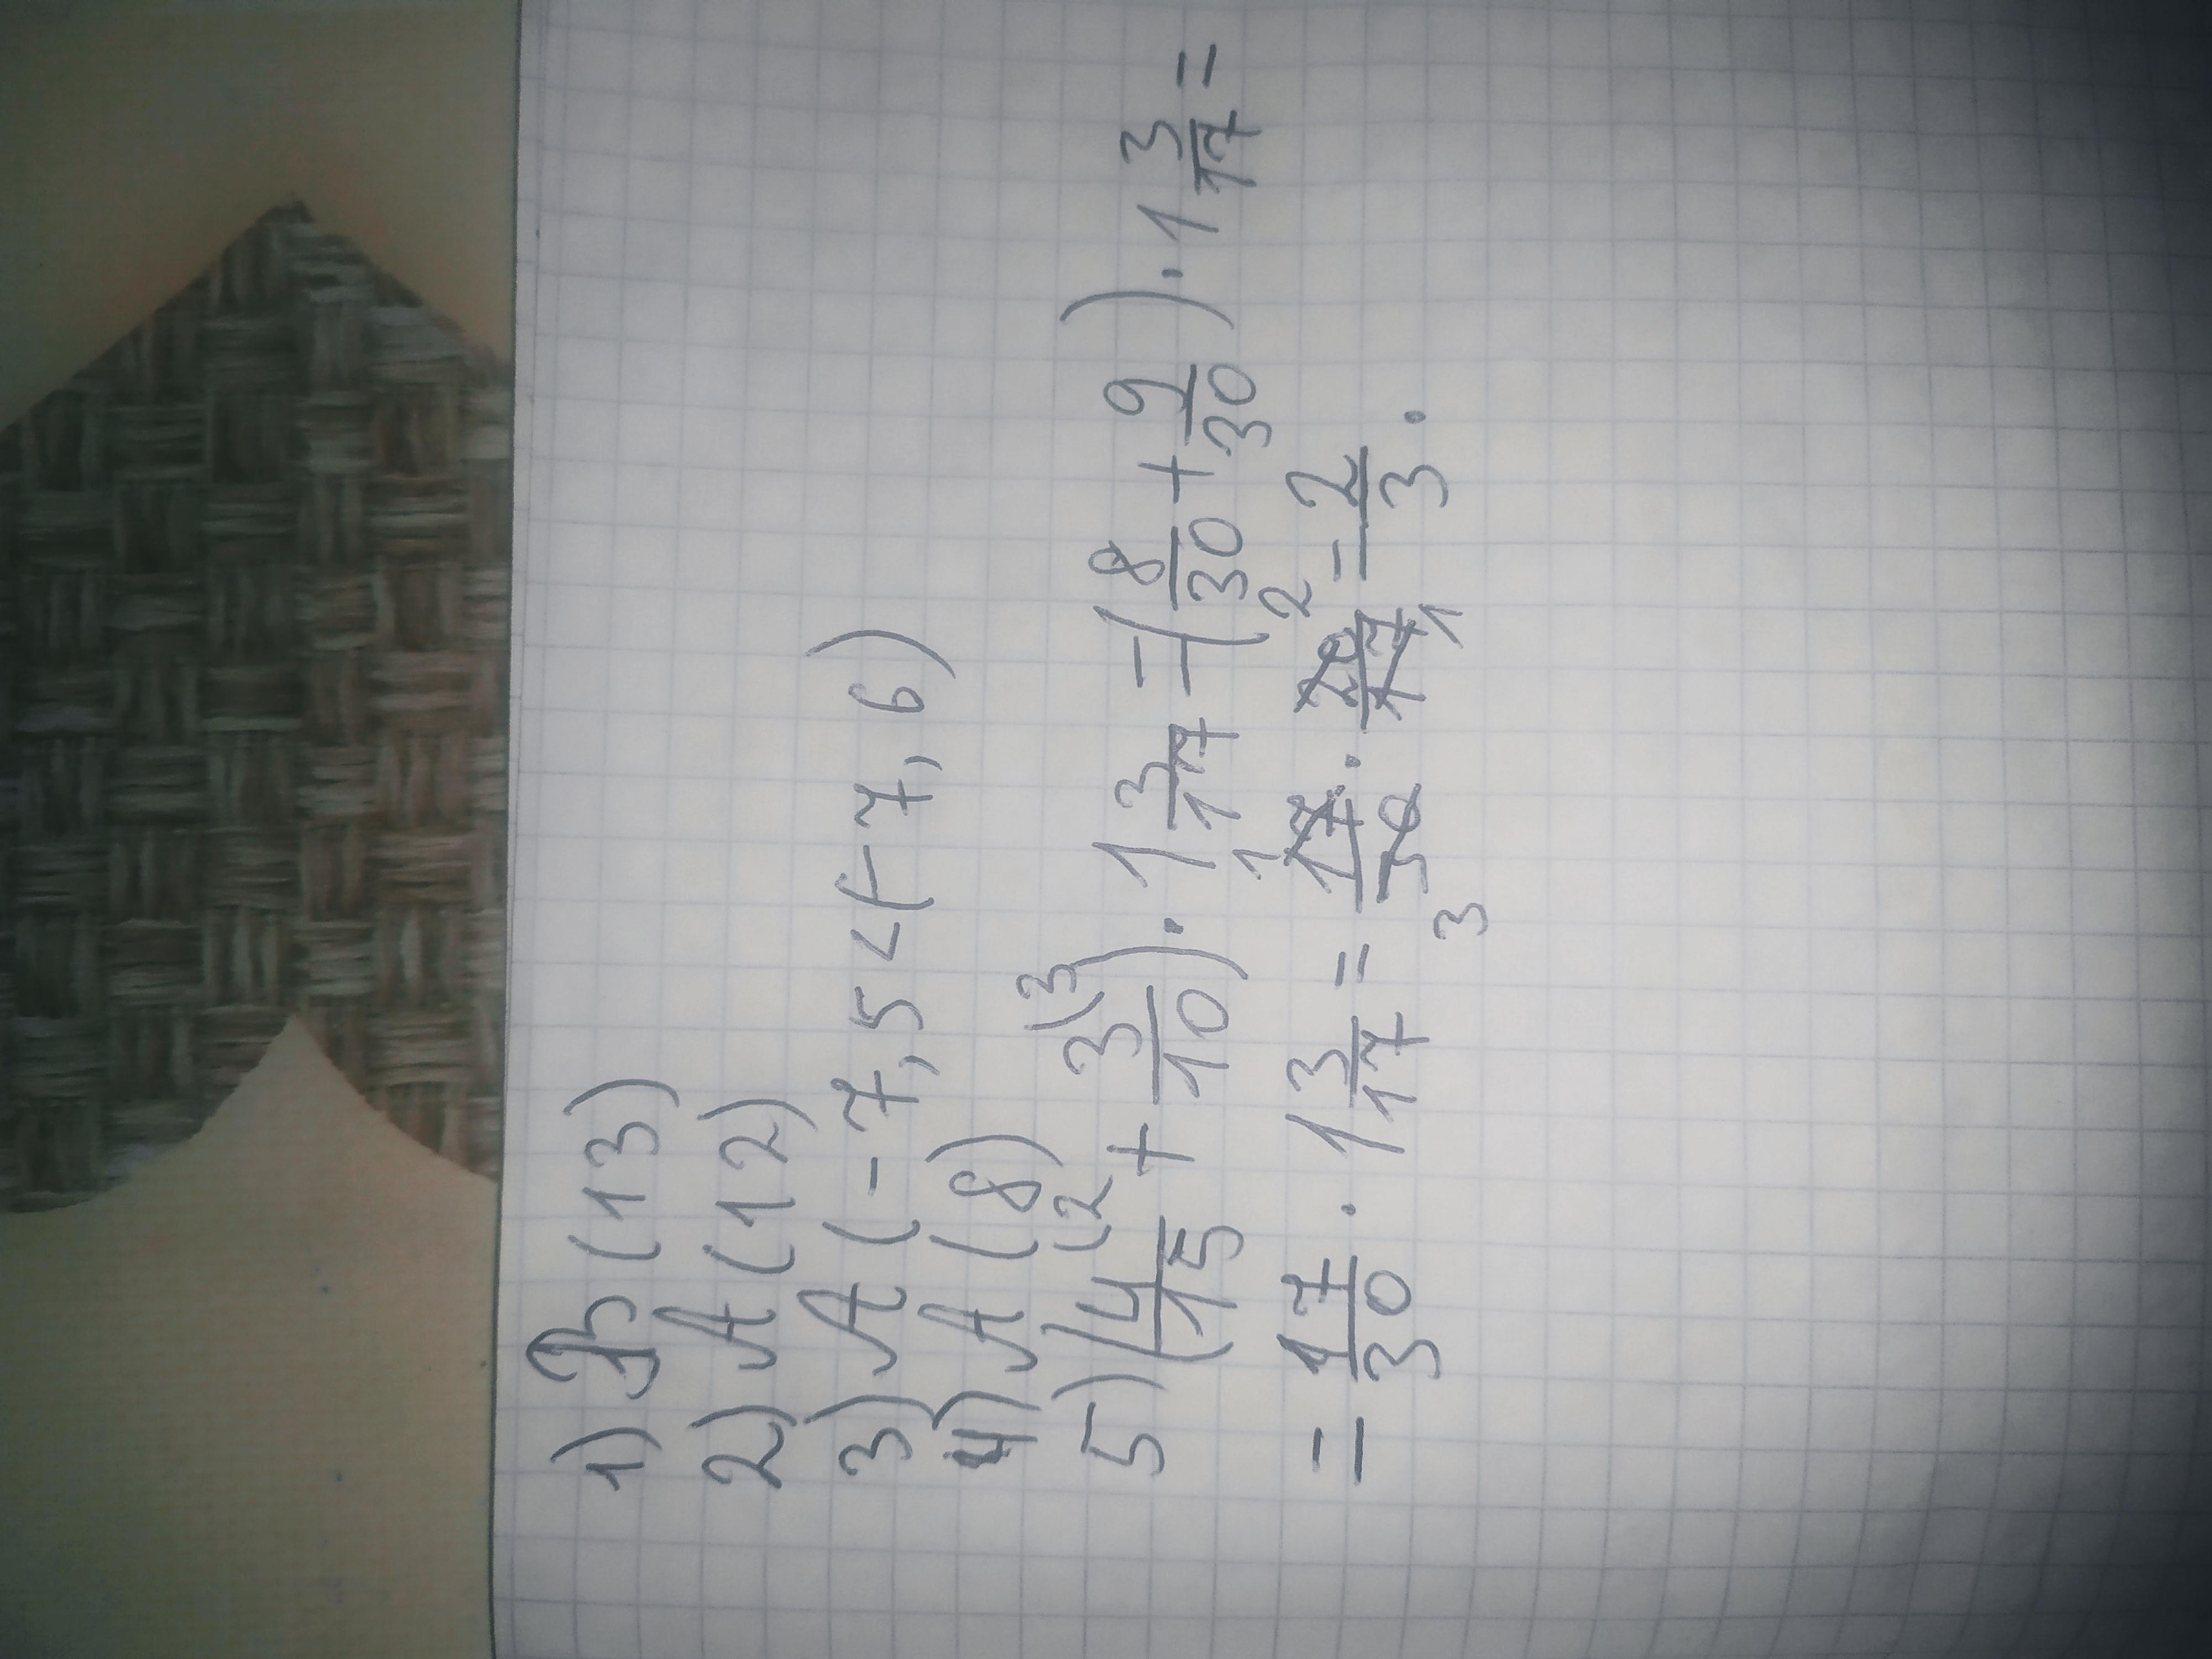 1) В (13)
2) А (12)
3) А (-7,5 < (-7,6)
4) А (8)
5) (4/15 (2 + 3/10 (3) · 1 3/17 = (8/30 + 9/30) · 1 3/17 =
= 17/30 · 1 3/17 = 1 17/30 3 · 20 2/17 1 = 2/3.